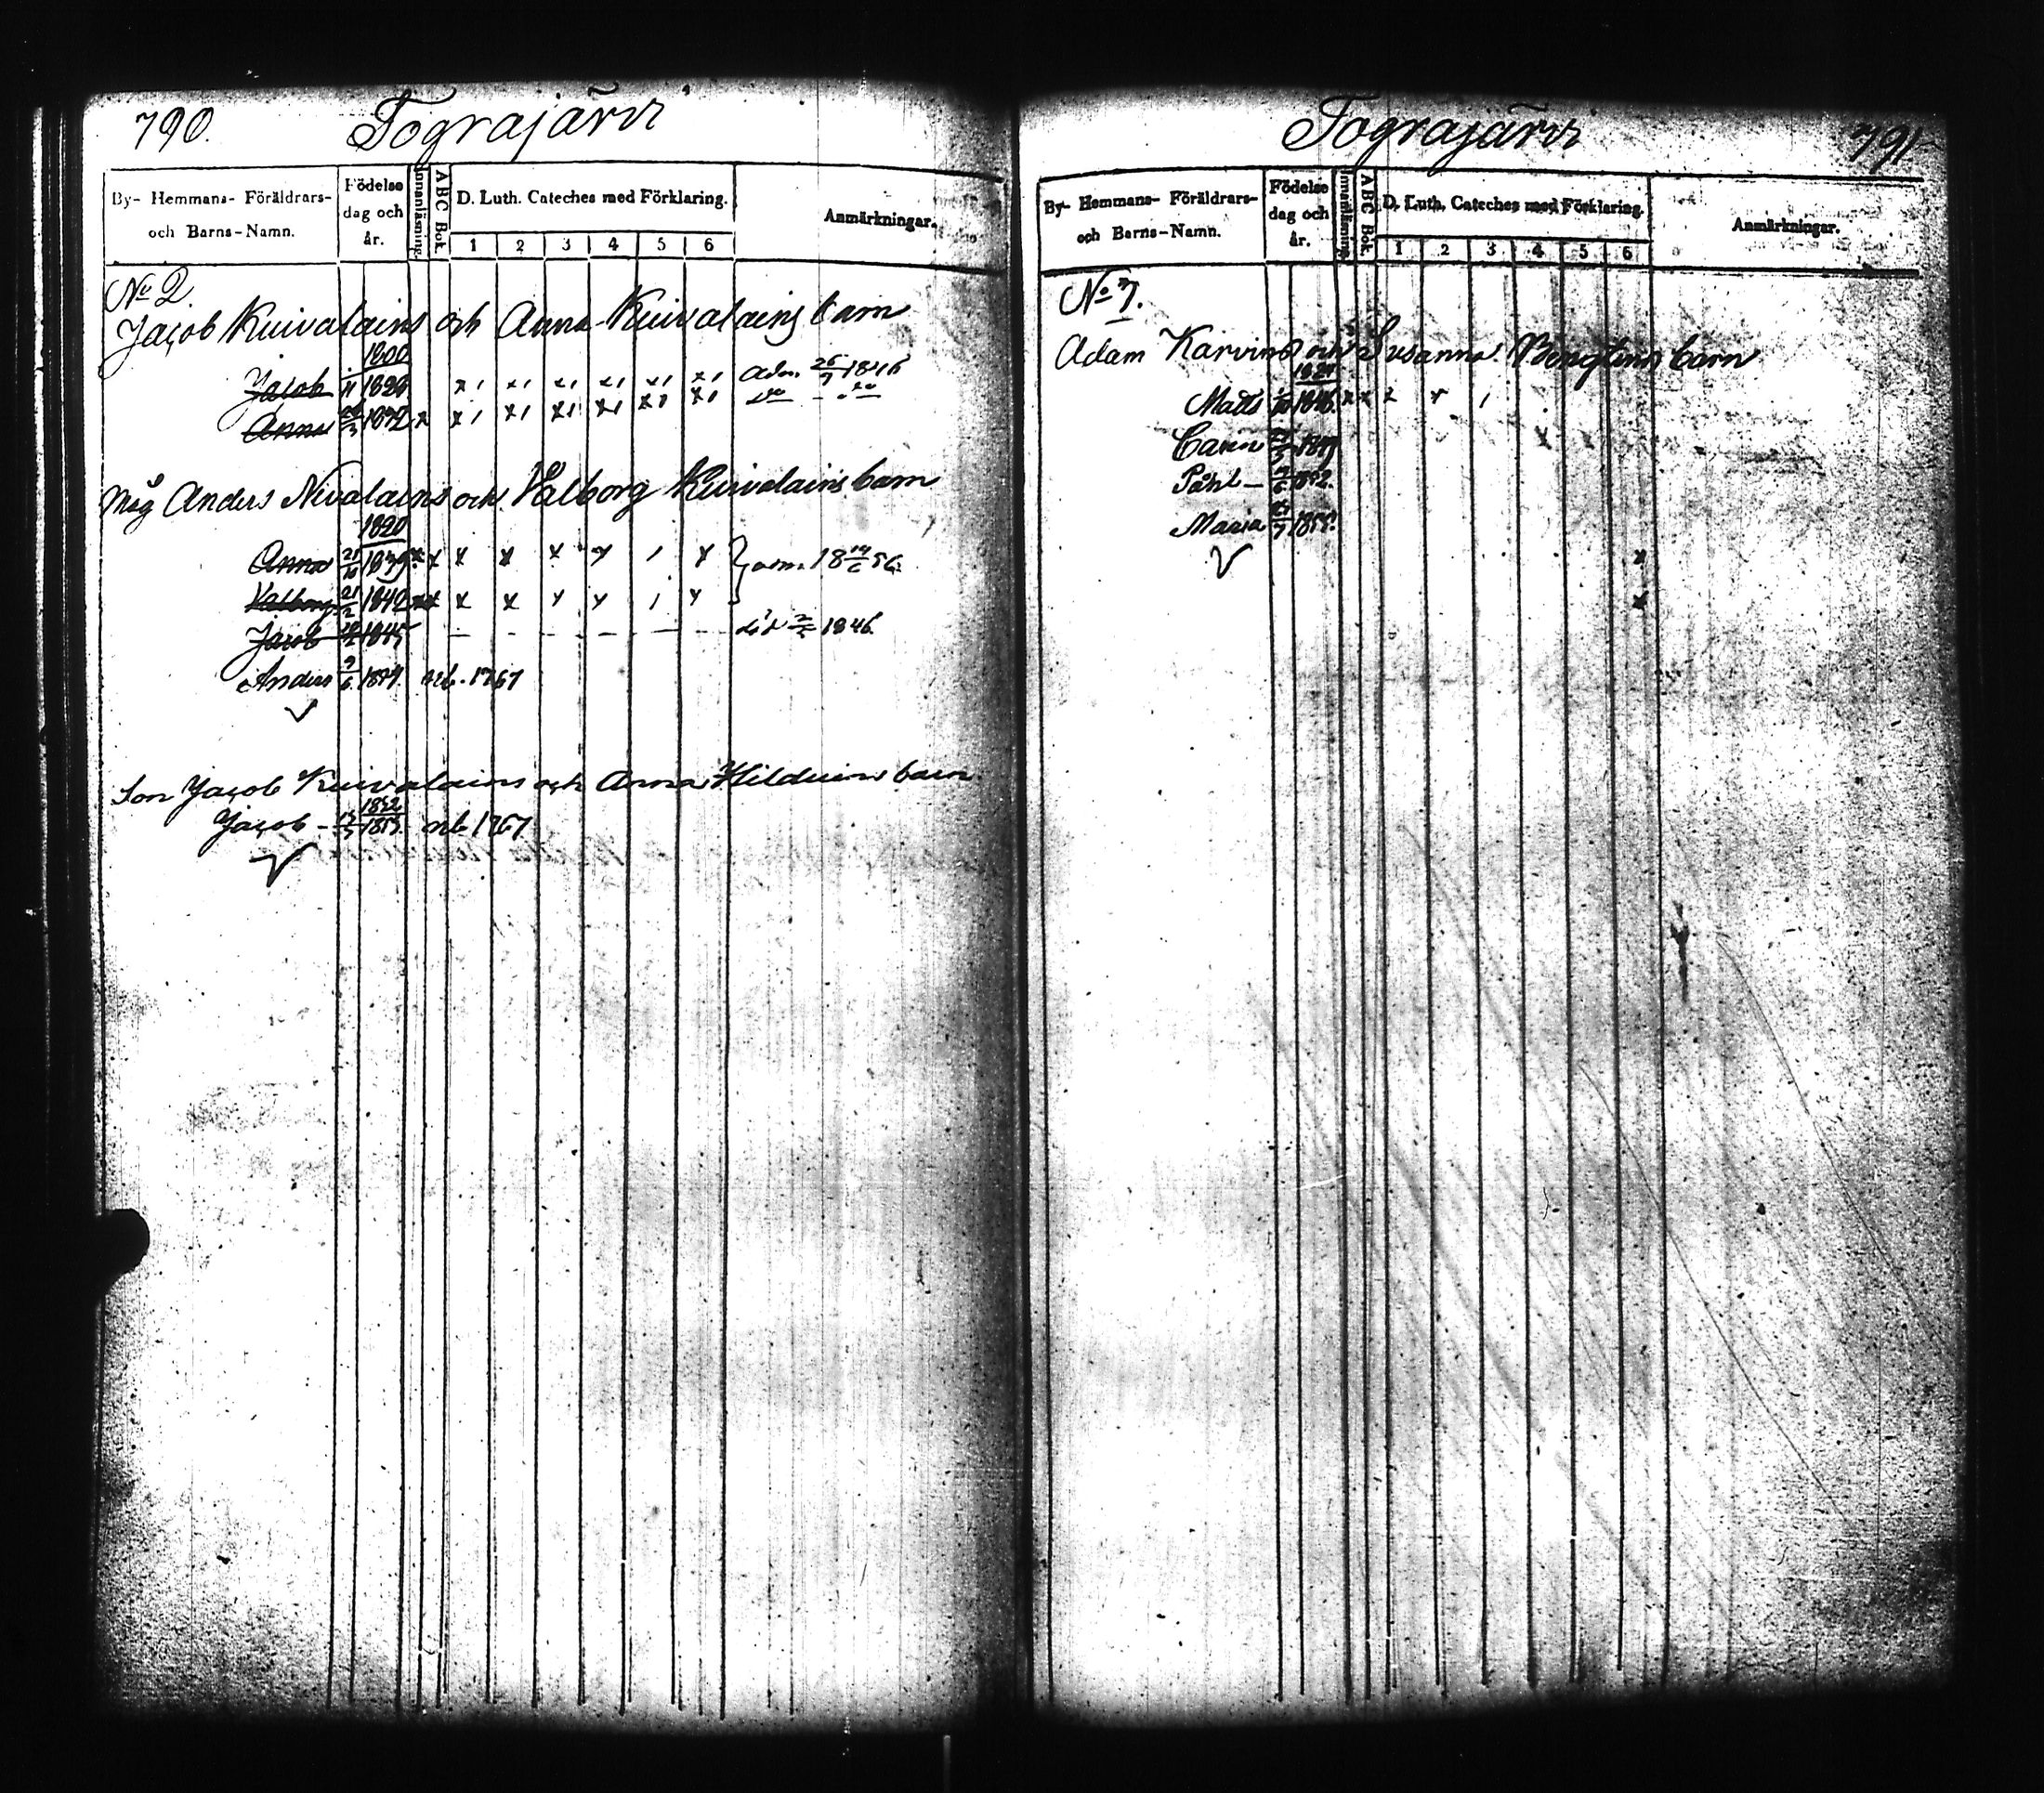 790. Tograjärvi
By- Hemmans- Föräldrars- och Barns-Namn. Födelse dag och år. Innanläsning. ABC Bok. D. Luth. Cateches med Förklaring. Anmärkningar.
1 2 3 4 5 6
No 2.
Jacob Kuivalains och Anna Kuivalains barn
1800
Jacob 11 1829 x1 x1 x1 x1 x1 x1 adm. 1846
Anna 3 1832 x x1 x1 x1 x1 x1 x1 do - do
Måg Anders Nivalains och Valborg Kuivalains barn
1820
Anna 21/10 1839 x x x x x x 1 x adm. 18 14/6 56.
Valborg 21/2 1842 x x x x x x 1 x
Jacob 1845 – – – – – – 1846.
Anders 9/6 nb. 1767
Son Jacob Kuivalains och Anna Hilduins barn
1852
Jacob – 1853. nb 1767
Tograjärvi 791
By- Hemmans- Föräldrars- och Barns-Namn. Födelse dag och år. Innanläsning. ABC Bok. D. Luth. Cateches med Förklaring. Anmärkningar.
1 2 3 4 5 6
No 7.
Adam Karvins och Susanna Bengtens barn
1821
Matts 1846. x x x x 1
Carin
Påhl – 1852.
Maria